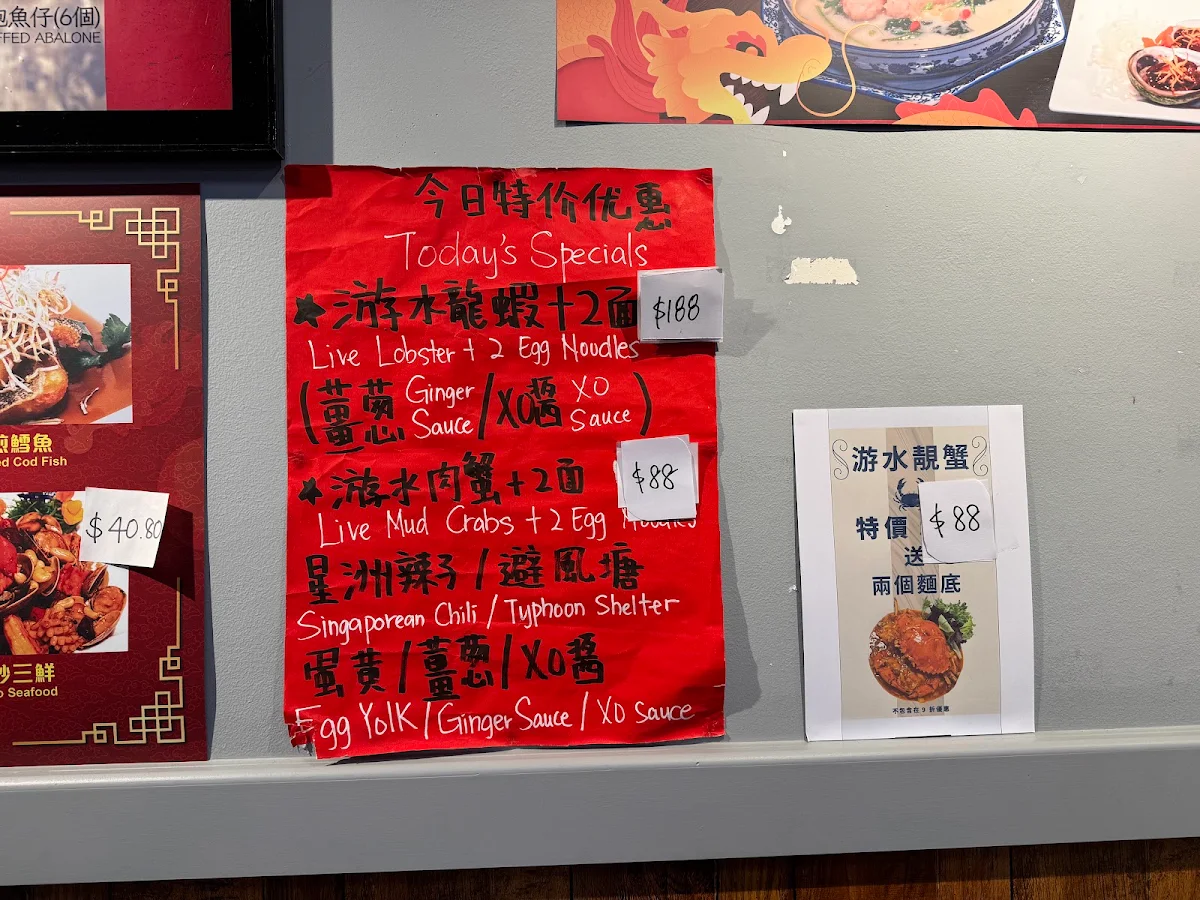 鮑魚仔(6個)
FFED ABALONE
煎鱈魚
ed Cod Fish
$40.80
炒三鮮
o Seafood
今日特价优惠
Today's Specials
★游水龍蝦+2面 $188
Live Lobster + 2 Egg Noodles
(薑葱 Ginger Sauce / XO醬 XO Sauce)
★游水肉蟹+2面 $88
Live Mud Crabs + 2 Egg Noodles
星洲辣子/避風塘
Singaporean Chili / Typhoon Shelter
蛋黄/薑葱/XO醬
Egg Yolk / Ginger Sauce / XO Sauce
游水靚蟹
特價 $88
送
兩個麵底
不包含在9折優惠